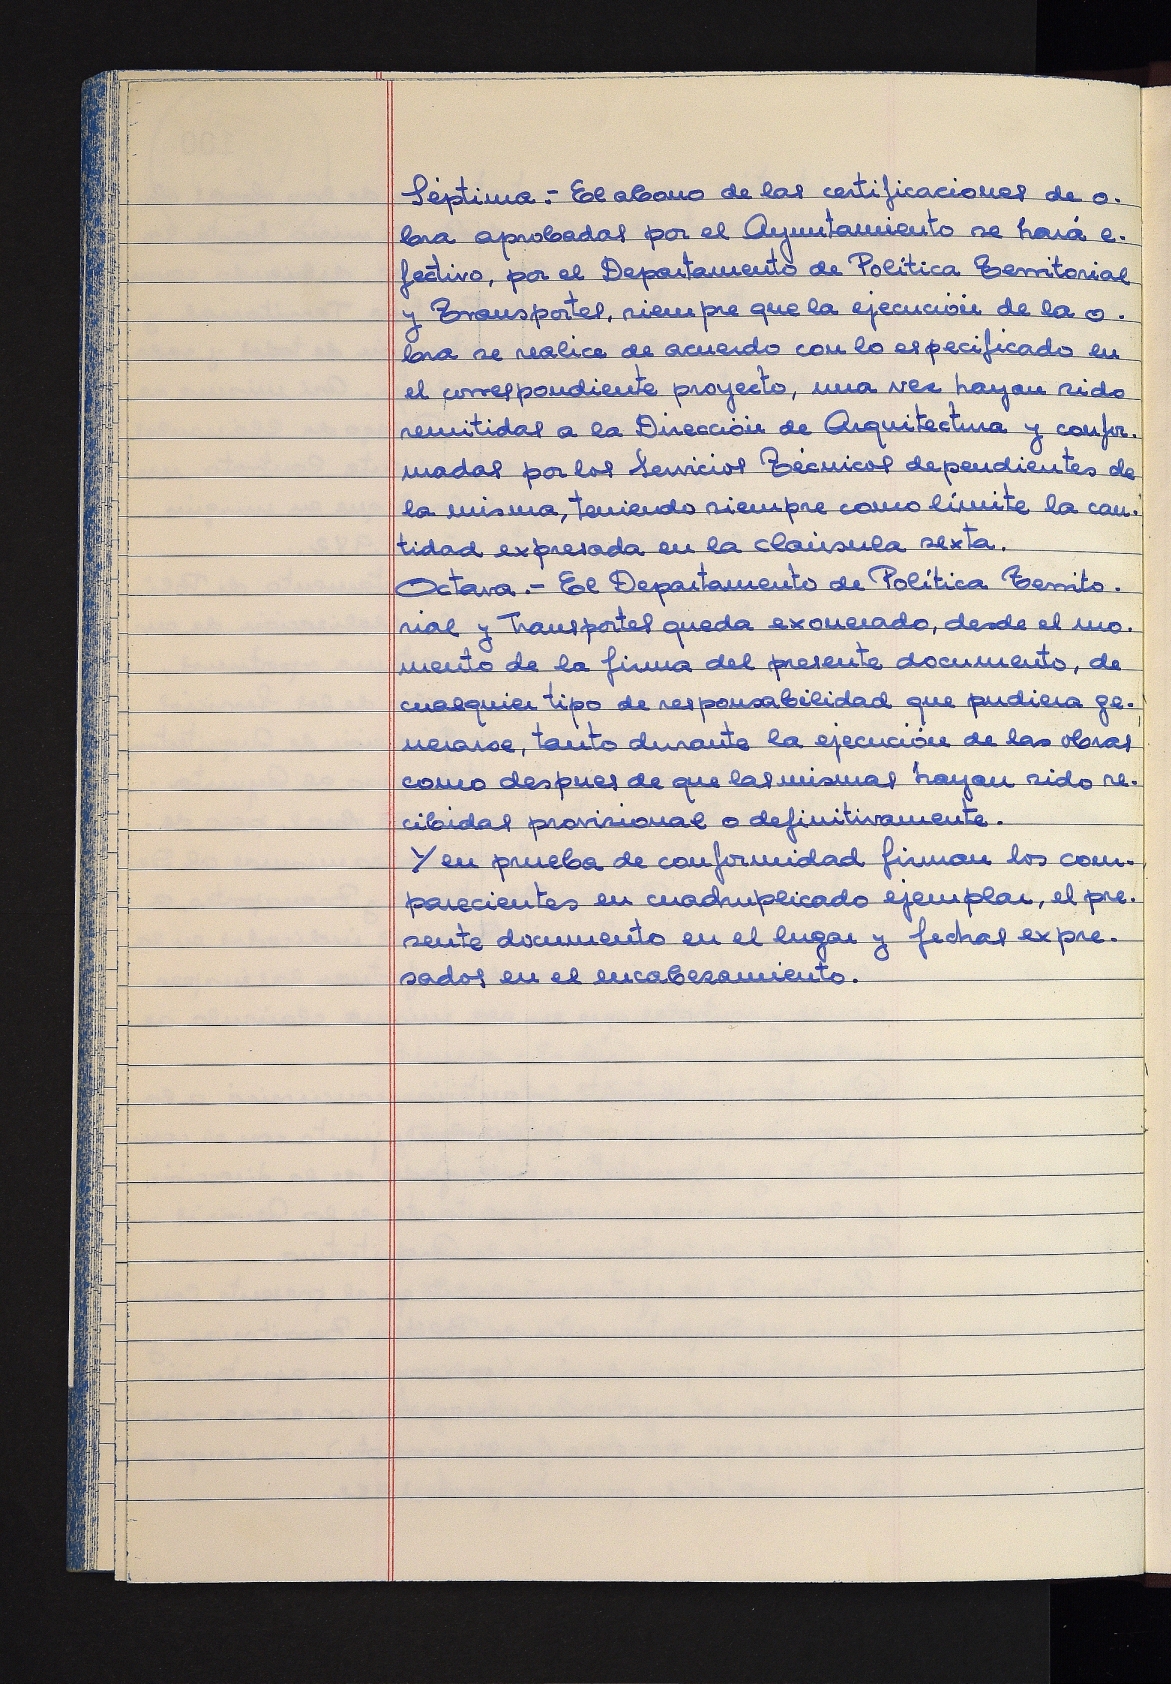 Séptima.- El abono de las certificaciones de o-
bra aprobadas por el Ayuntamiento se hará e-
fectivo, por el Departamento de Política Territorial
y Transportes, siempre que la ejecución de la o-
bra se realice de acuerdo con lo especificado en
el correspondiente proyecto, una vez hayan sido
remitidas a la Dirección de Arquitectura y confor-
madas por los Servicios Técnicos dependientes de
la misma, teniendo siempre como límite la can-
tidad expresada en la claúsula sexta.
Octava.- El Departamento de Política Territo-
rial y Transportes queda exonerado, desde el mo-
mento de la firma del presente documento, de
cualquier tipo de responsabilidad que pudiera ge-
nerarse, tanto durante la ejecución de las obras
como despues de que las mismas hayan sido re-
cibidas provisional o definitivamente.
Y en prueba de conformidad firman los com-
parecientes en cuadruplicado ejemplar, el pre-
sente documento en el lugar y fechas expre-
sados en el encabezamiento.